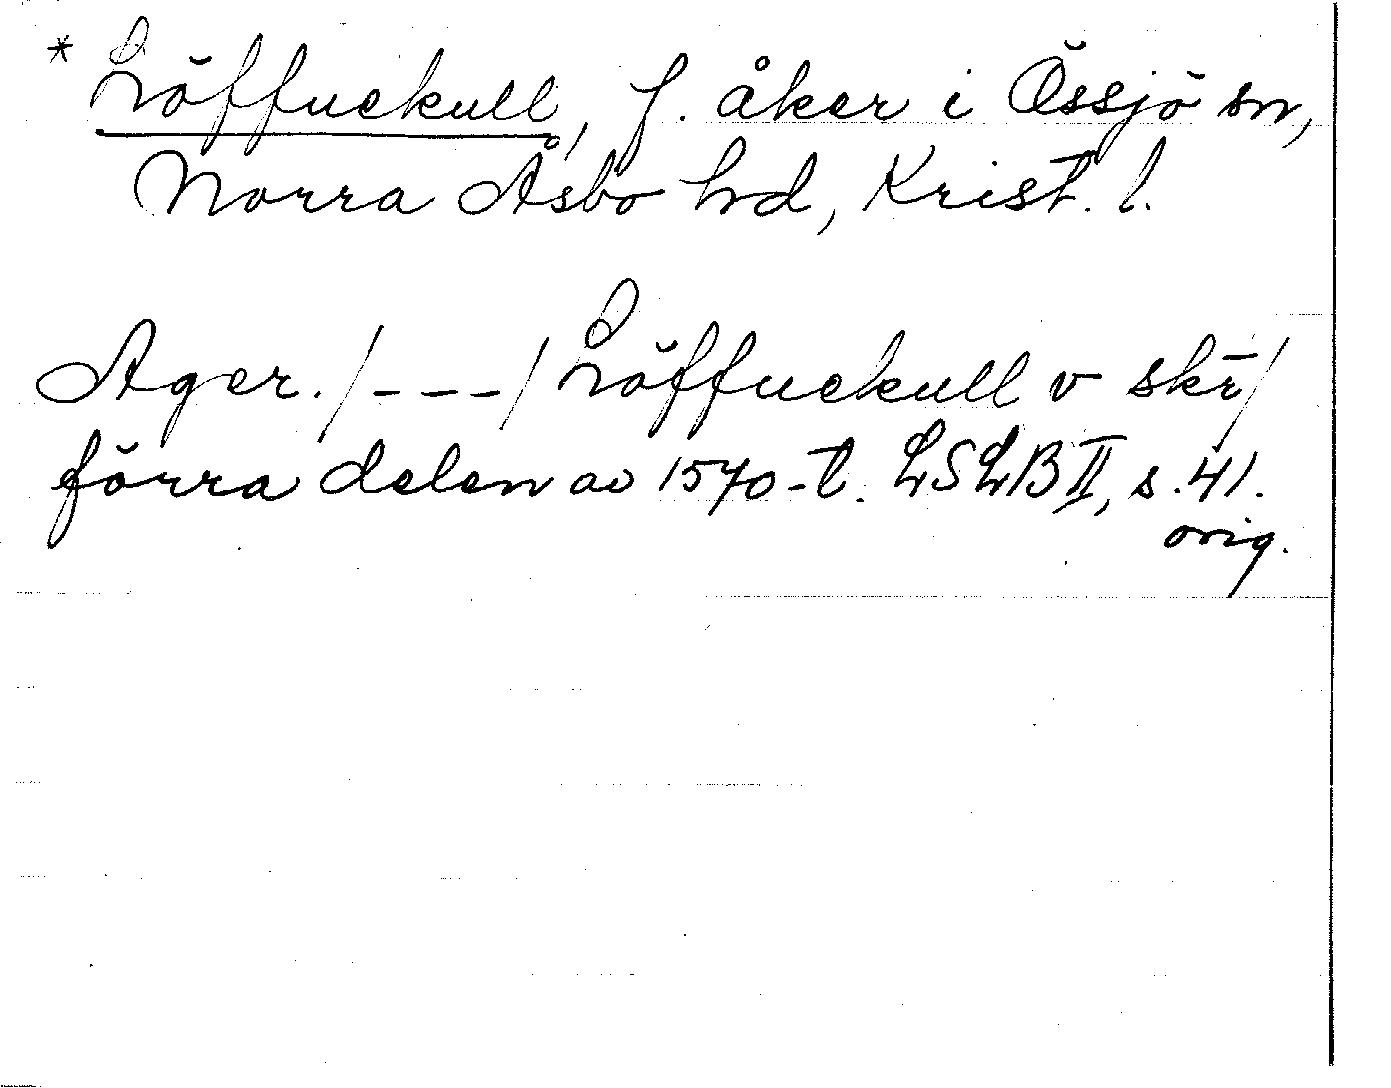 * Löffuekull, f. åker i Össjö sn,
Norra Åsbo hd, Krist. l.
Ager. /---/ Löffuekull v skr̄/
förra delen av 1570-t. LSLB II, s. 41.
orig.